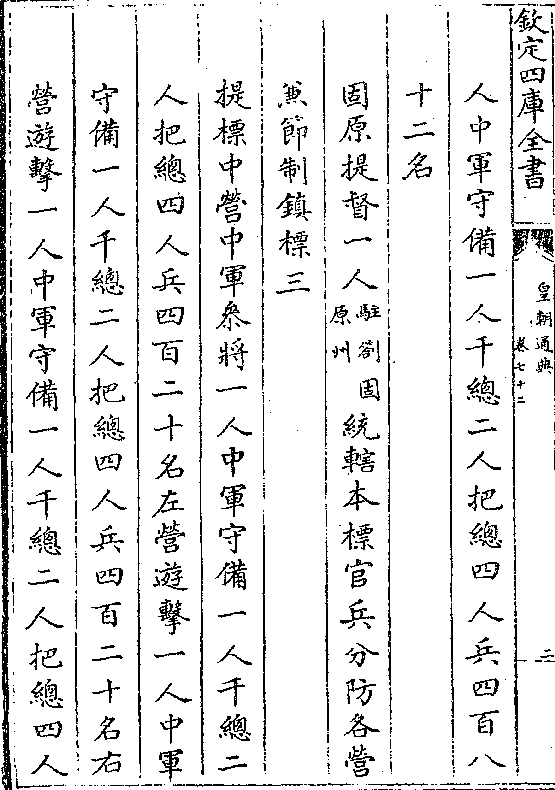 欽定四庫全書
皇朝通典
卷七十二
二
人中軍守備一人千總二人把總四人兵四百八
十二名
固原提督一人駐劄固原州統轄本標官兵分防各營
兼節制鎮標三
提標中營中軍叅將一人中軍守備一人千總二
人把總四人兵四百二十名左營遊擊一人中軍
守備一人千總二人把總四人兵四百二十名右
營遊擊一人中軍守備一人千總二人把總四人